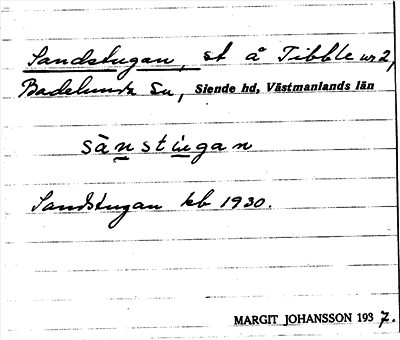 Sandstugan, st å Tibble nr 2,
Badelunda sn, Siende hd, Västmanlands län
sànstugan
Sandstugan kb 1930.
MARGIT JOHANSSON 1937.